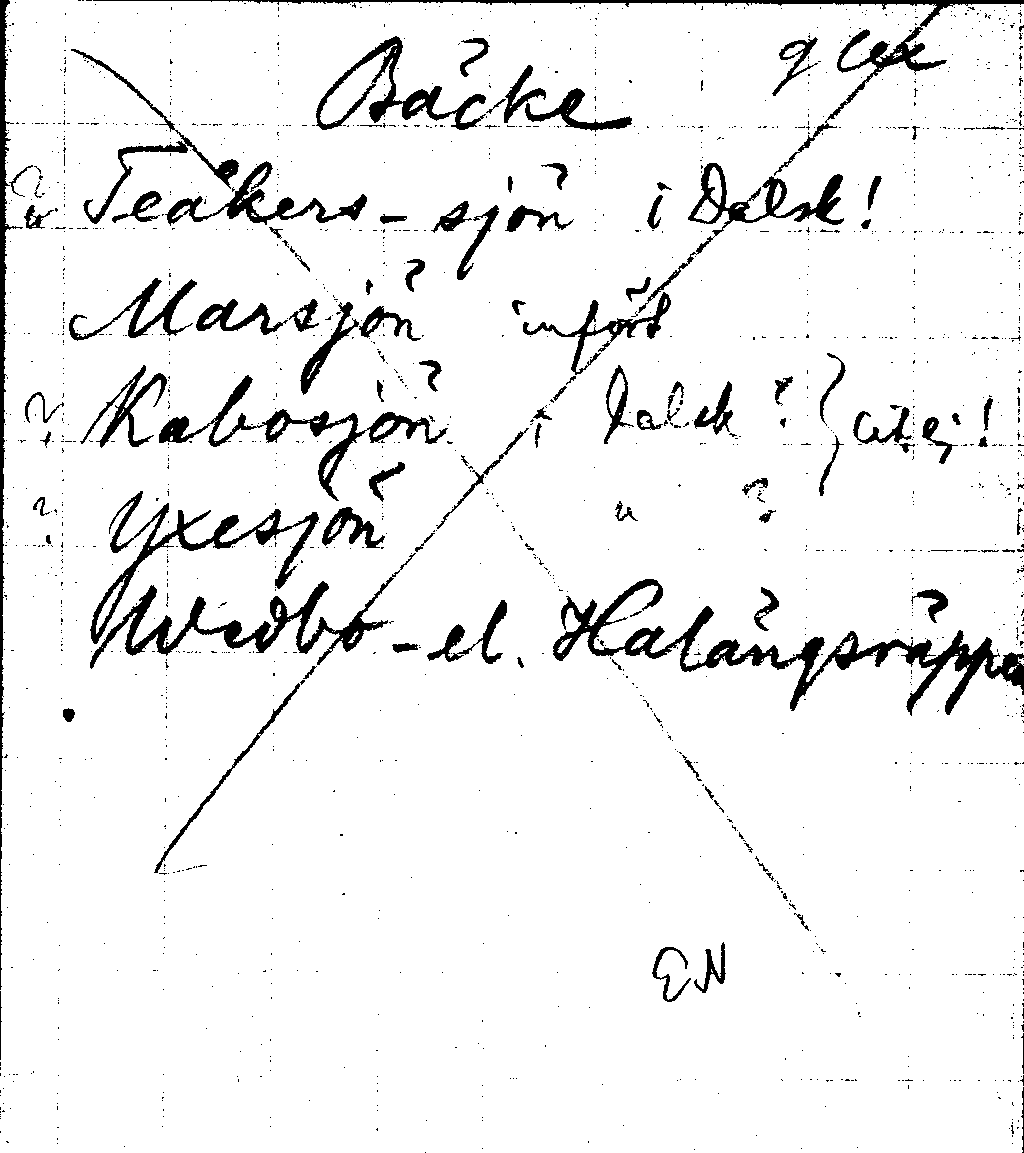 Bäcke
? Teåkers-sjön i Dalsk!
Marsjön infört
? Kabosjön i Dalsk? ej!
? Yxesjön " ?
Wedbo- el. Halängsräppen
EN